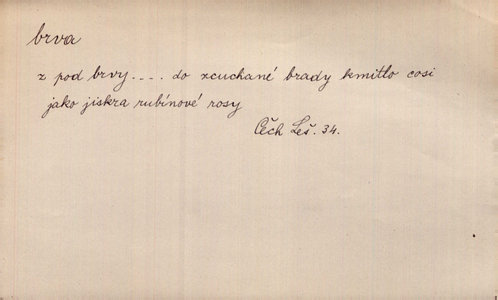 brva
z pod brvy.... do zcuchané brady kmitlo cosi
jako jiskra rubínové rosy
Čech Leš. 34.